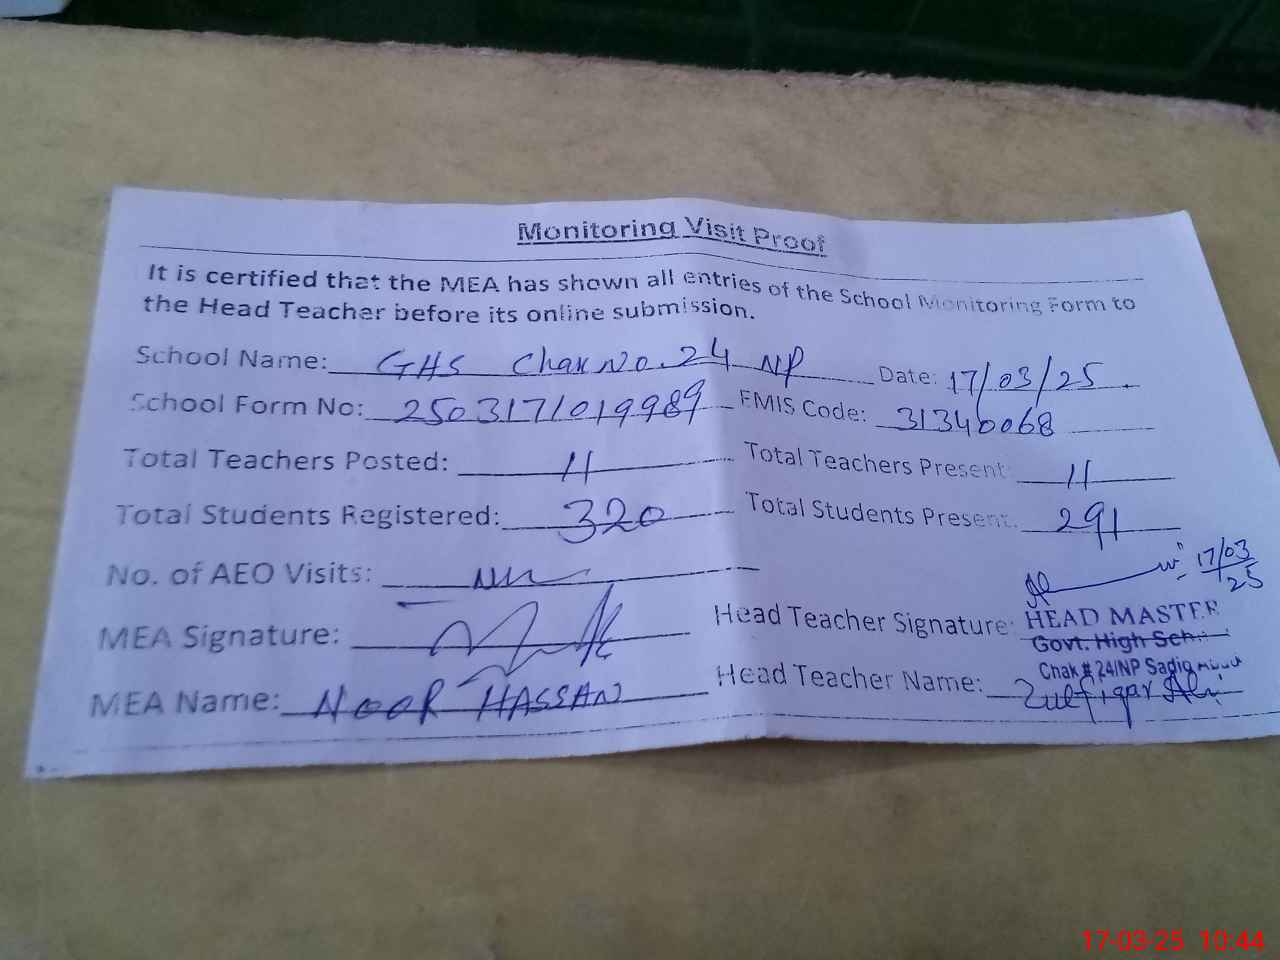 Monitoring Visit Proof
It is certified that the MEA has shown all entries of the School Monitoring Form to
the Head Teacher before its online submission.
School Name: GHS Chak No. 24 NP Date: 17/03/25
School Form No: 2503171019989 EMIS Code: 31340068
Total Teachers Posted: 11 Total Teachers Present: 11
Total Students Registered: 320 Total Students Present: 291
No. of AEO Visits:
17/03
25
MEA Signature: Head Teacher Signature: HEAD MASTER
Govt. High Sch
Chak # 24/NP Sadiq
MEA Name: NOOR HASSAN Head Teacher Name: Zulfiqar Ali
17-03-25 10:44